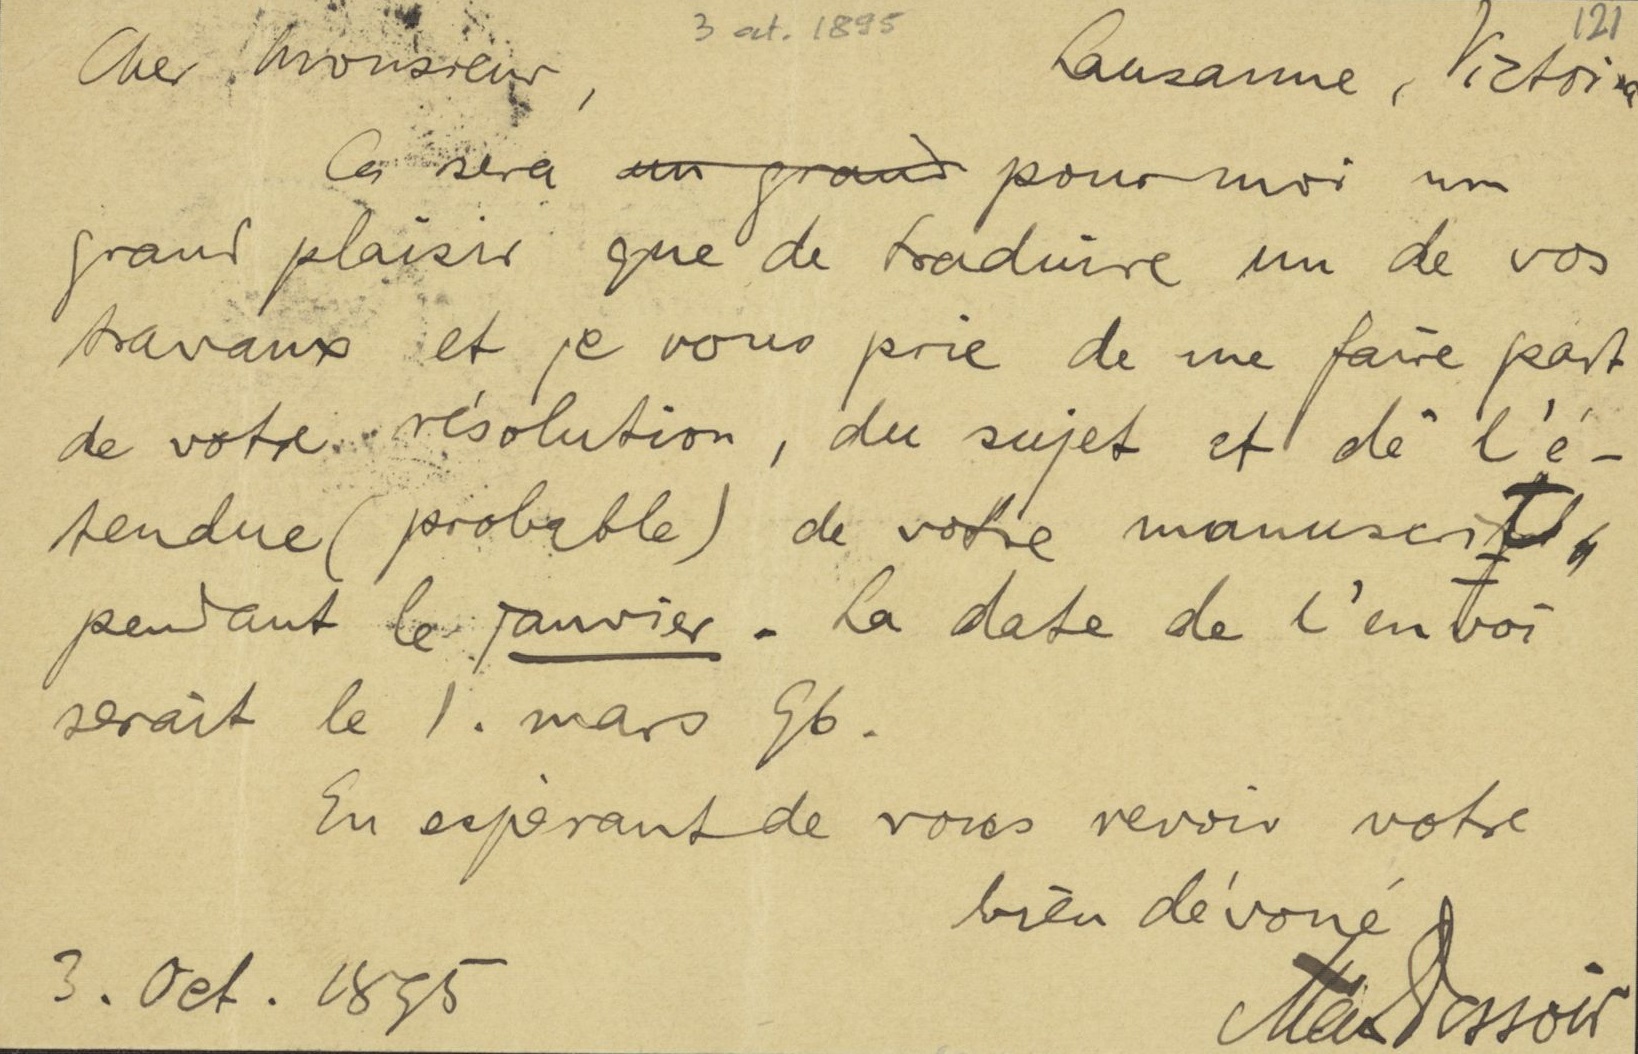 121
3 oct. 1895
Cher Monsieur, Lausanne, Victoria
Ce sera un grand pour moi un
grand plaisir que de traduire un de vos
travaux et je vous prie de me faire part
de votre résolution, du sujet et de l'é-
tendue (probable) de votre manuscrit,
pendant le janvier. La date de l'envoi
serait le 1. mars 96.
En espérant de vous revoir votre
bien dévoué
3. Oct. 1895 Max Dessoir